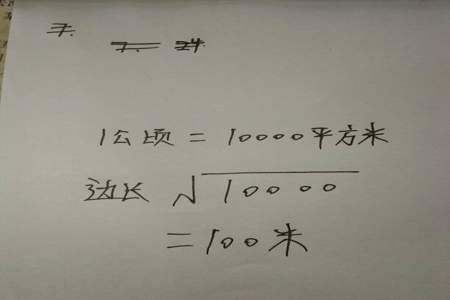 1公顷 = 10000平方米
边长 √10000
=100米